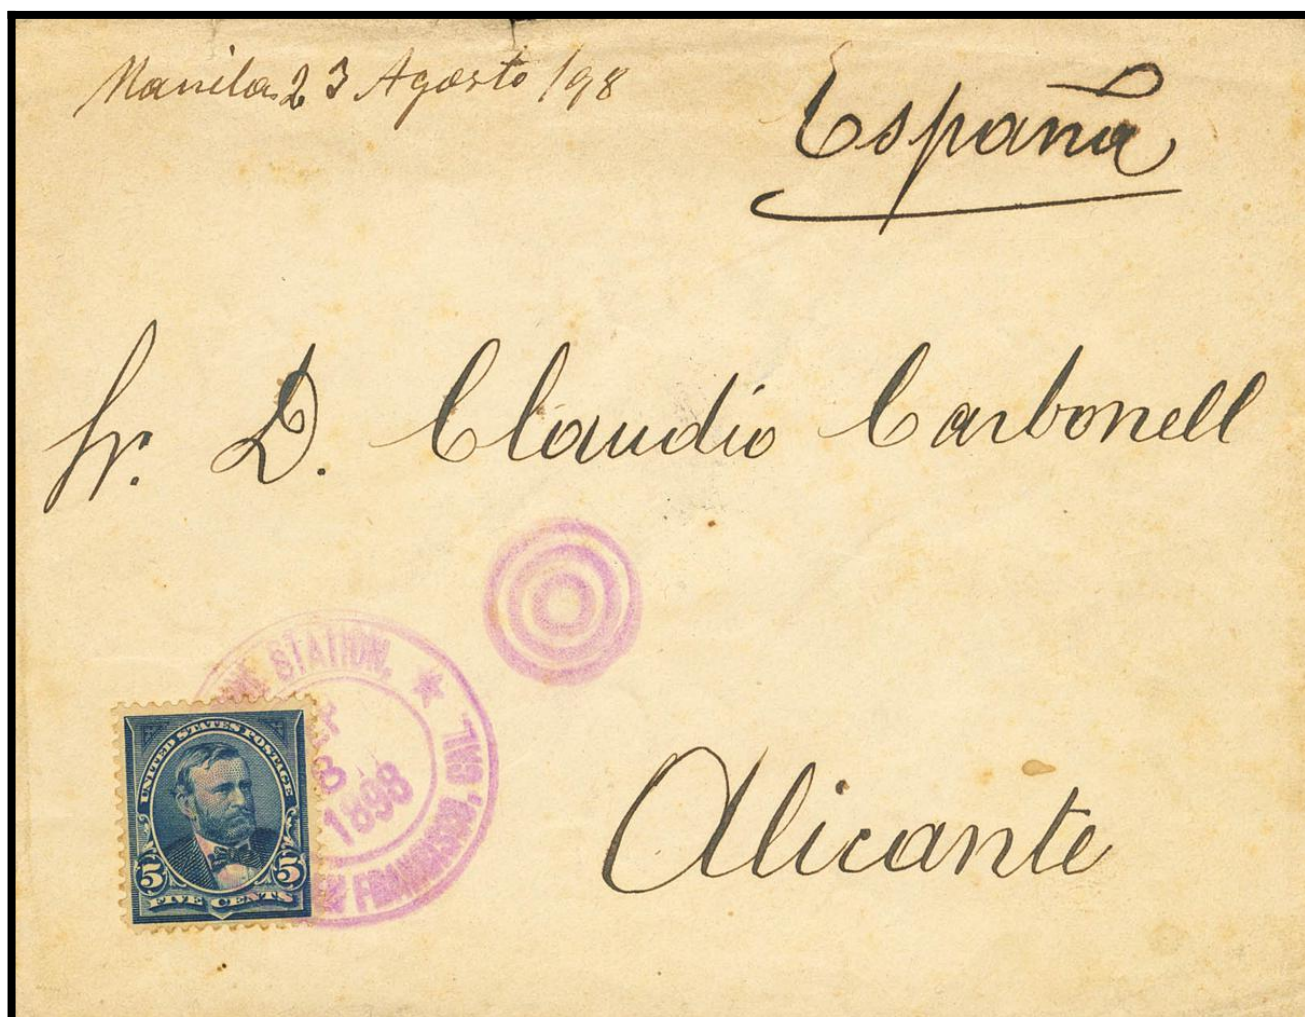 Manila 23 Agosto /98
España
Sr. D. Claudio Carbonell
STATION,
1898
SAN FRANCISCO, CAL.
UNITED STATES POSTAGE
5 5
FIVE CENTS
Alicante